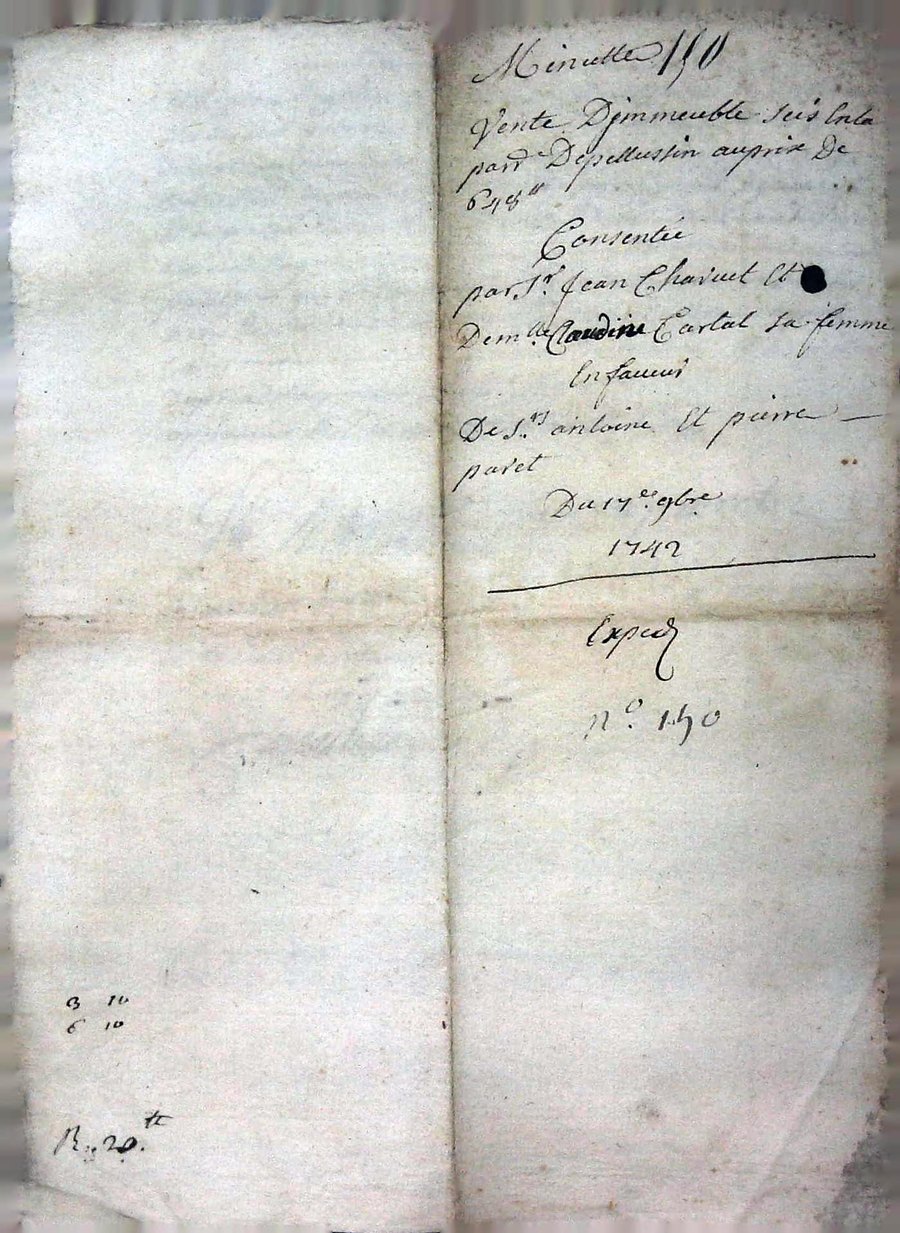 Minutte 150
Vente Djmmeuble scis Enla
parr.e Depellussin auprix De
648 tt
Consentée
par Sr. Jean Charuet Et
Demlle. Claudine Cartal sa femme
Enfaueur
De Srs. antoine Et pierre
paret
Du 17e. 9bre
1742
Exped
No. 150
3 10
6 10
R. 20 tt